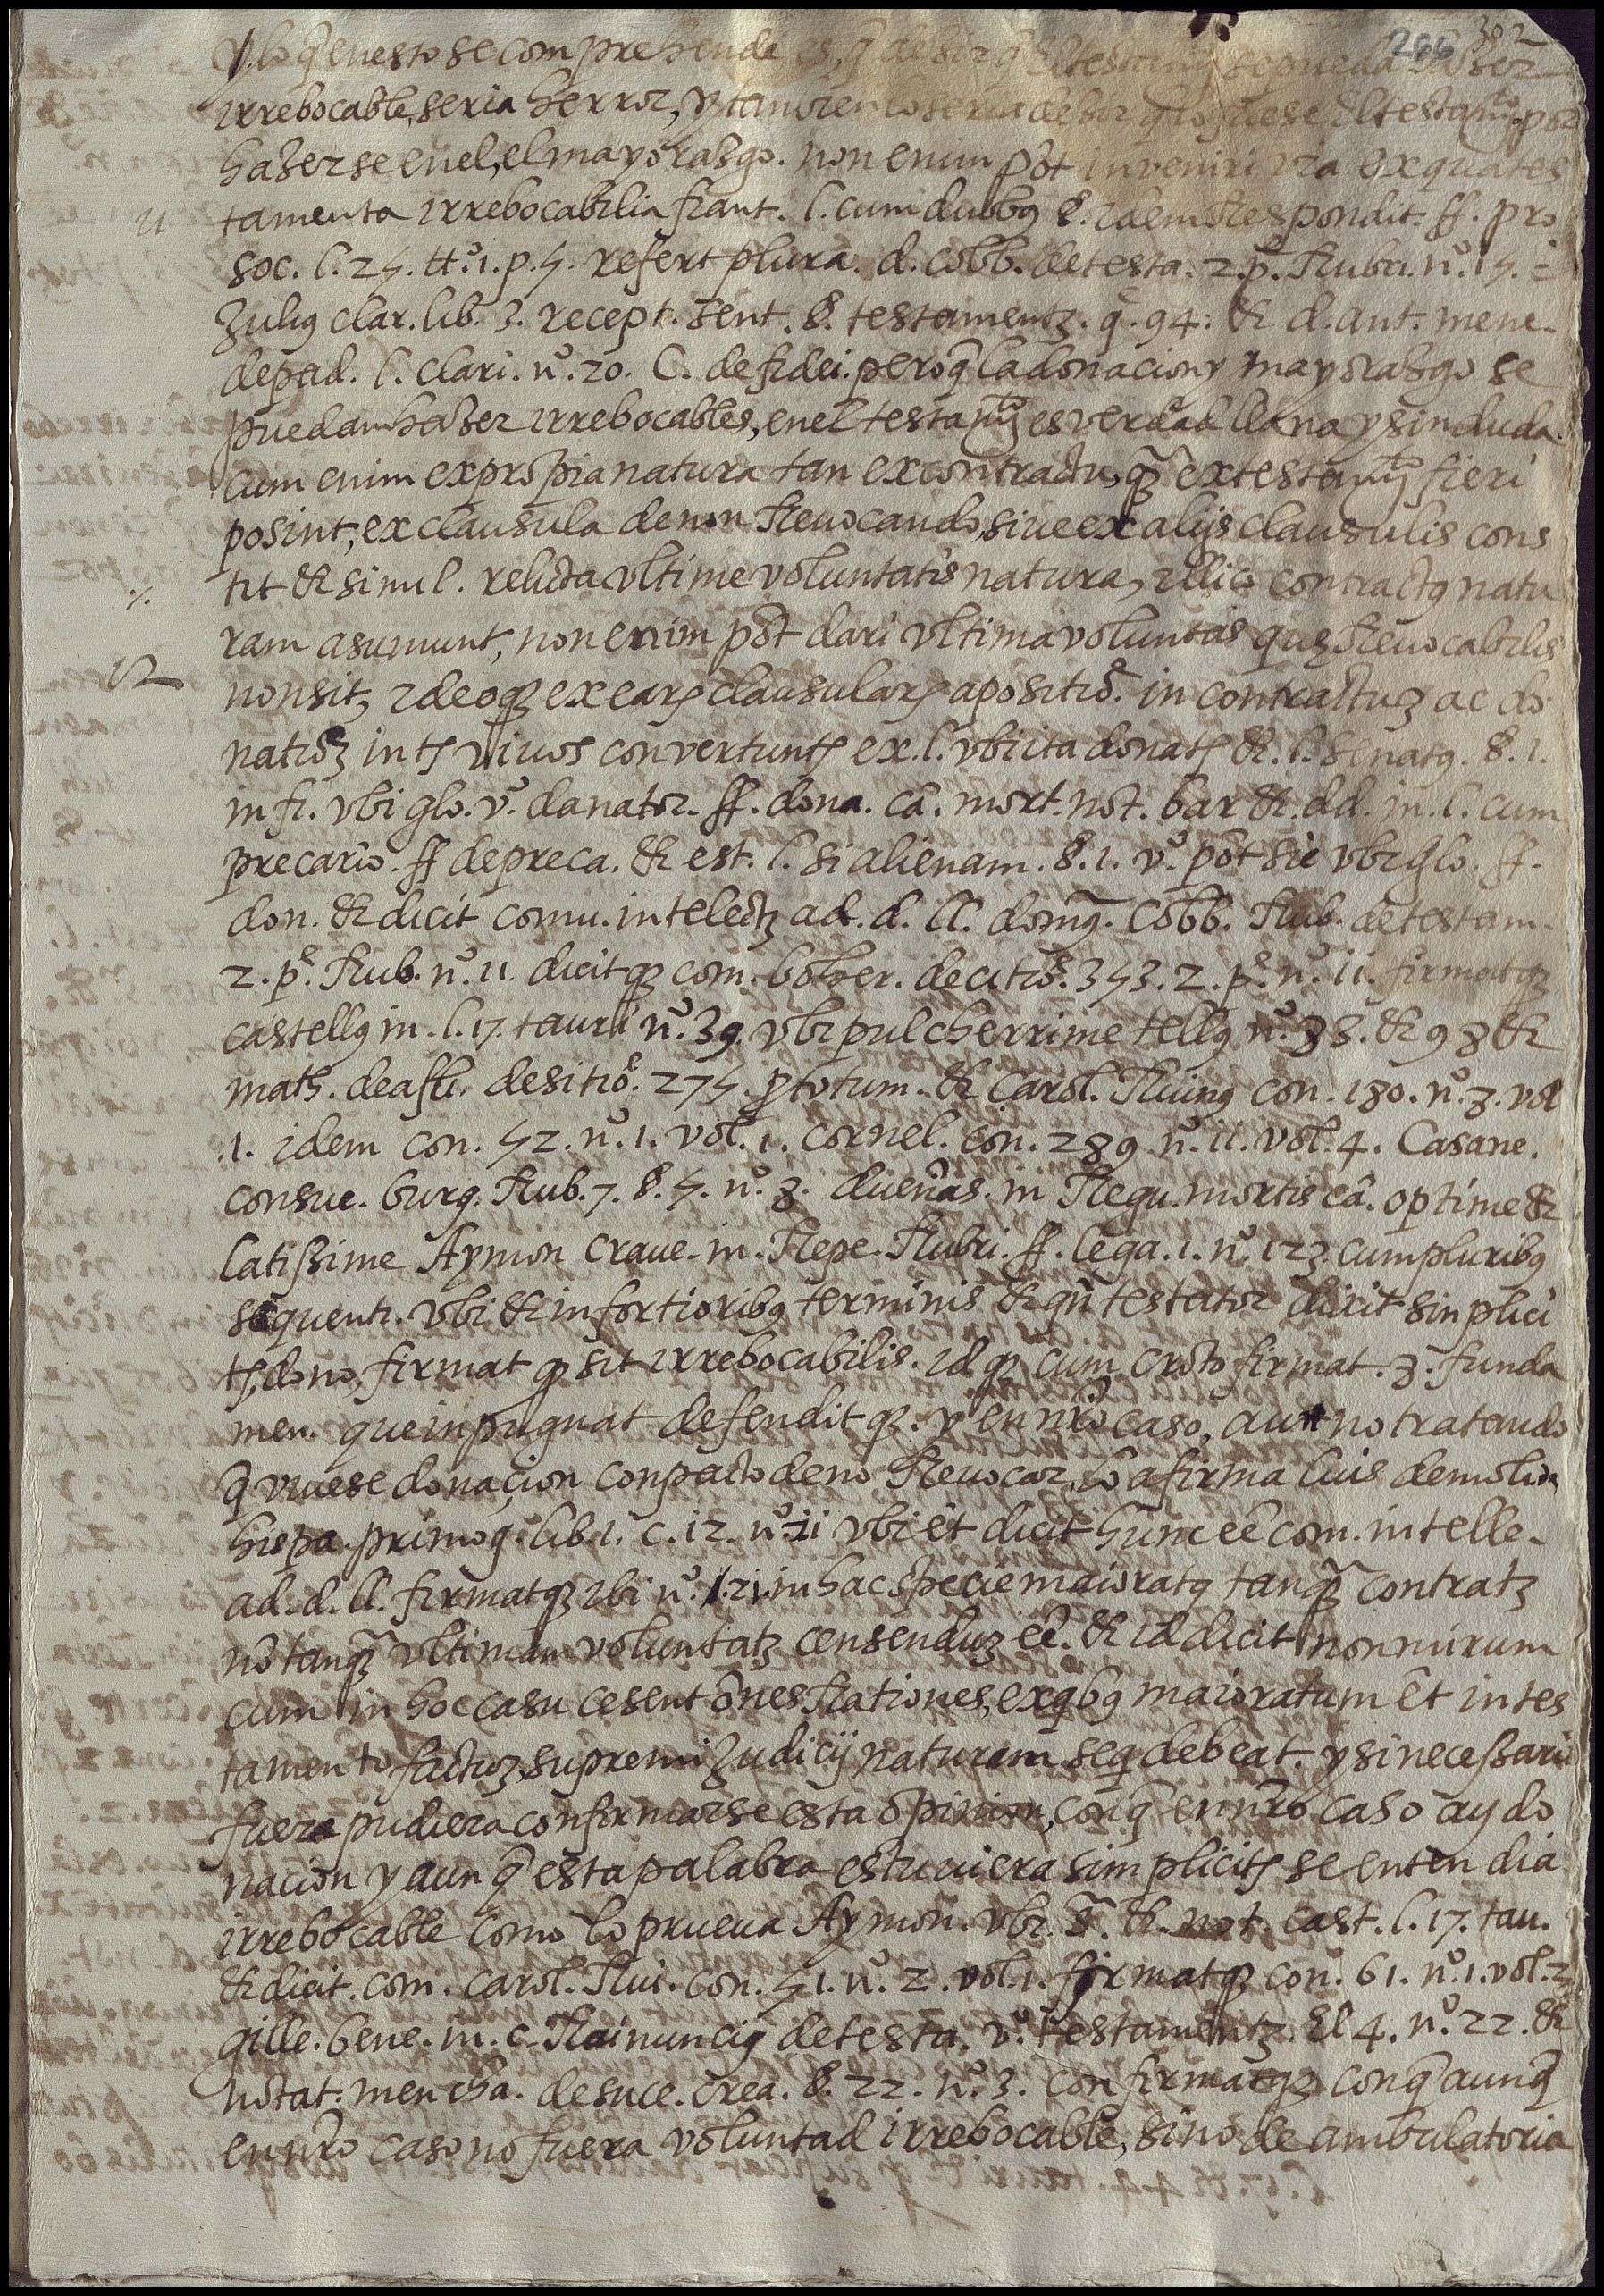 266 302
y lo q̃ en esto se comprehende es, q̃ desir q̃ el testamto se pueda haser
irrebocable, seria herror, y tanvien lo seria desir q̃ lo fuese el testamto. por
haserse en el, el mayorasgo. non enim põt inveniri via ex qua tes
11 tamenta irrebocabilia fiant. l. cum duobꝯ §. idem respondit. ff. pro
soc. l. 25. tt.º 1. p. 5. refert plura. d. cobb. de testa. 2. p. Rubri. n.º 15.
Juliꝯ clar. lib. 3. recept. sent. §. testamentȝ. q. 94. & d. ant. mene.
depad. l. clari. n.º 20. C. de fidei. pero q̃ la donacion y mayorasgo se
puedan haser irrebocables, en el testamto es verdad llana y sin duda.
cum enim ex propia natura tan ex contractu, qȝ ex testamto fieri
posint, ex clausula de non revocando, sive ex alijs clausulis cons
tit & simul. relicta vltime voluntatis natura, illico contractꝯ natu
ram asumunt, non enim põt dari vltima voluntas que revocabilis
12 non sit, ideoqȝ ex earꝝ clausularꝝ apositiõe. in contractuȝ ac do
natiõȝ intꝭ vivos convertuntꝭ ex. l. vbi ita donatꝭ &. l. senatꝯ. §. 1.
in fi. vbi glo. vº. danator. ff. dona. câ. mort. not. bar &. dd. in. l. cum
precario. ff de preca. & est. l. si alienam. §. 1. vº. põt sie vbi glo. ff.
don. & dicit comu. intelectȝ ad. d. ll. domꝯ. Cobb. Rub. de testam.
2. p.e Rub. n.º 11. dicitqȝ com. boher. decitiõe. 353. 2. p.e n.º 11. firmatqȝ
castellꝯ in. l. 17. tauri n.º 39. vbi pulcherrime tellꝯ n.º 38. & 98 &
math. de afli. desitiõe. 275. p totum. & Carol. Ruinꝯ con. 180. n.º 3. vol
1. idem con. 52. n.º 1. vol. 1. cornel. con. 289 n.º 11. vol. 4. Casane.
consue. burg. Rub. 7. §. 5. n.º 3. dueñas. in Regu. mortis câ. optime &
latissime Aymon crave. in. Repe. Rubri. ff. lega. 1. n.º 123. cum pluribꝯ
sequenti. vbi & in fortioribꝯ terminis & qñ testator dicit sinplici
tꝭ, dono, firmat qȝ sit irrebocabilis. idqȝ cum croto firmat. 3. funda
men. que inpugnat defenditqȝ. y en nrõ caso, aun no tratando
q̃ vuese donaçion con pacto de no revocar, lo afirma luis de molina
hispa. primog. lib. 1. c. 12. n.º 11 vbi êt dicit hunc eê com. intelle.
ad. d. ll. firmatqȝ ibi n.º 21. in hac specie maioratꝯ tanqȝ contratȝ
nõ tanqȝ vltimam voluntatȝ censenduȝ eê. & id dicit non mirum
cum in hoc casu cesent õnes rationes, ex qbꝯ maioratum êt in tes
tamento factuȝ, supremi Judicij naturam seq̃ debeat. y si necessario
fuera pudiera confirmarse esta opinion, con q̃ en nrõ caso ay do
nacion y aunq̃ esta palabra estuviera simplicitꝭ se entendia
irrebocable como lo prueva Aymon. vbi. §.ª &. not. cast. l. 17. tau.
& dicit. com. carol. Rui. con. 51. n.º 2. vol. 1. firmatqȝ con. 61. n.º 1. vol. 2
gille. bene. in. c. Rainunciꝯ de testa. vº. testamentȝ. El 4. n.º 22. &
notat. mencha. de suce. crea. §. 22. n.º 3. confirmatqȝ con q̃ aunq̃
en nrõ caso no fuera voluntad irrebocable, sino de ambulatoria